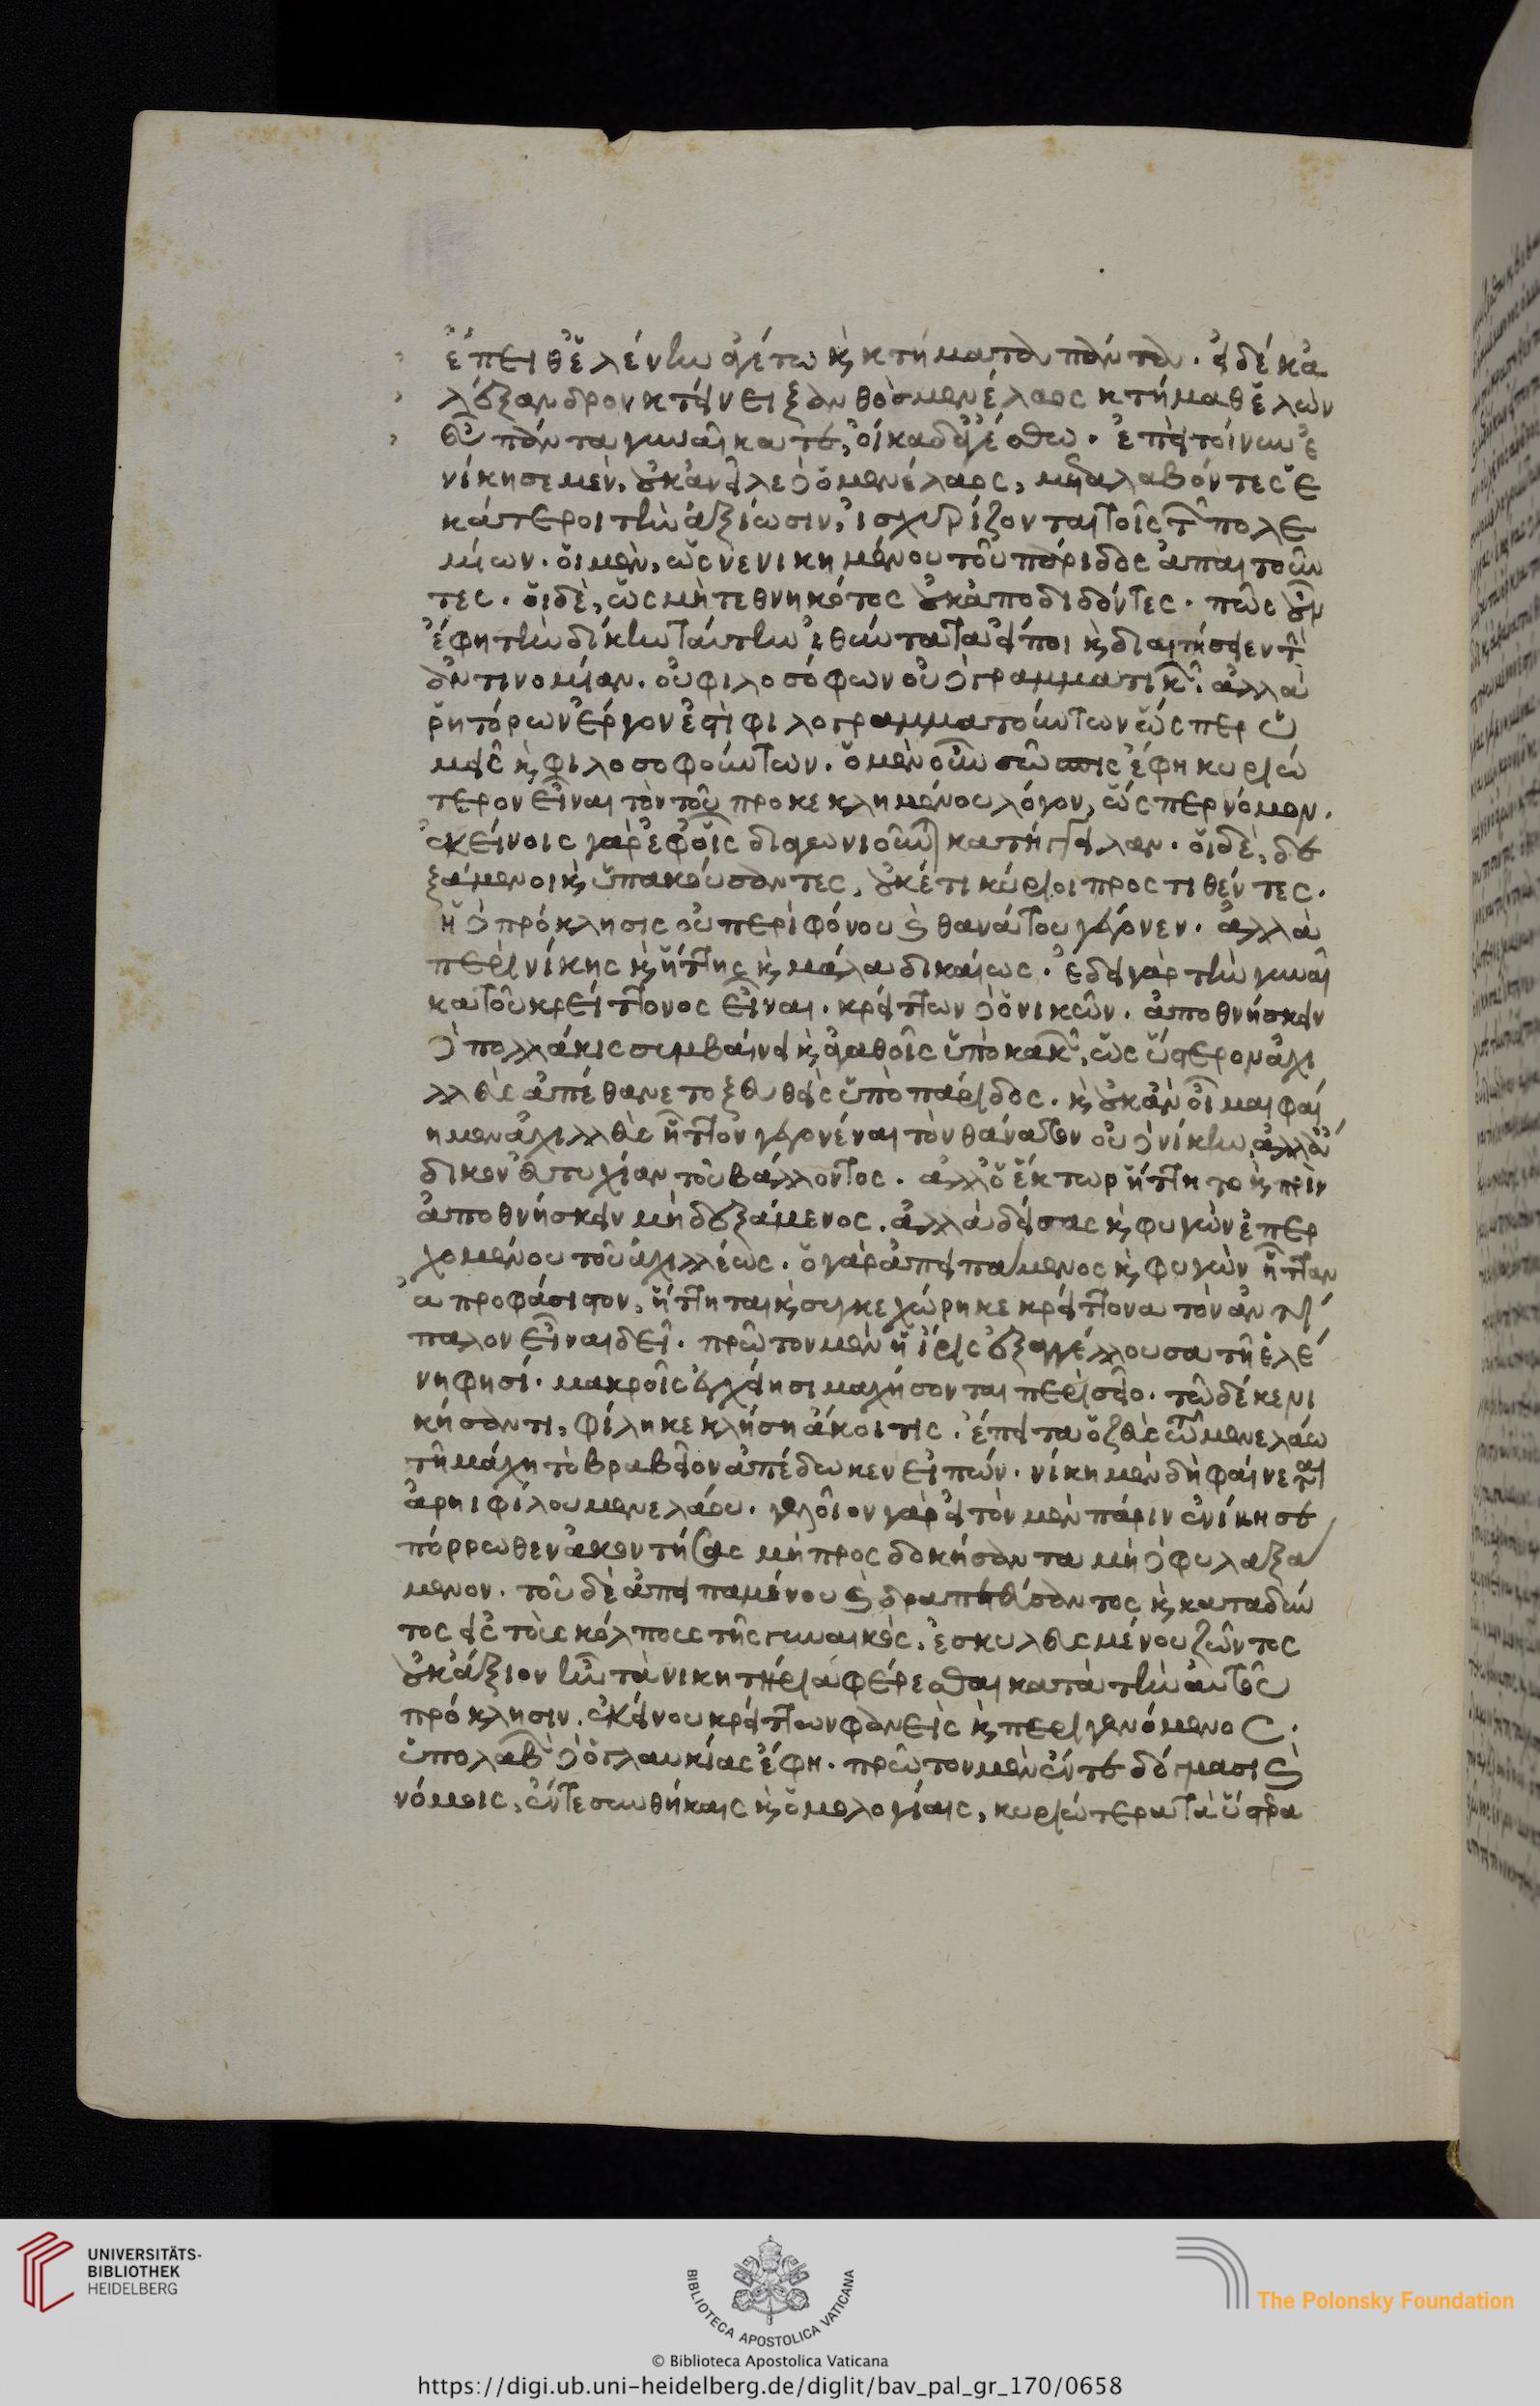 ἔπειθ' ἑλένην ἐχέτω καὶ κτήματα πάντα. εἰ δέ κ' ἀ
λέξανδρον κτείνει ξανθὸς μενέλαος κτήμαθ' ἑλὼν
εὖ πάντα γυναῖκα τε, οἴκαδ' ἀγέσθω. ἐπεὶ τοίνυν ἐ
νίκησε μὲν, οὐκ ἀνεῖλε δὲ ὁ μενέλαος, μεταλαβόντες ἑ
κάτεροι τὴν ἀξίωσιν, ἰσχυρίζονται τοῖς τῶν πολε
μίων. οἱ μὲν, ὡς νενικημένου τοῦ πάριδος ἀπαιτοῦν
τες. οἱ δὲ, ὡς μὴ τεθνηκότος οὐκ ἀποδιδόντες. πῶς οὖν
ἔφη τὴν δίκην ταύτην ἰθύντατα ἂν εἴποι καὶ διαιτήσειεν τὴν
ἀντινομίαν. οὐ φιλοσόφων οὐδὲ γραμματικῶν. ἀλλὰ
ῥητόρων ἔργον ἐστὶ φιλογραμματούντων ὥσπερ ὑ
μεῖς καὶ φιλοσοφούντων. ὁ μὲν οὖν σῶσπις ἔφη κυριώ
τερον εἶναι τὸν τοῦ προκεκλημένου λόγον, ὥσπερ νόμον.
ἐκείνοις γὰρ ἐφ' οἷς διαγωνιοῦνται κατήγγειλαν. οἱ δὲ, δε
ξάμενοι καὶ ὑπακούσαντες, οὐκέτι κύριοι προστιθέντες.
ἡ δὲ πρόκλησις οὐ περὶ φόνου καὶ θανάτου γέγονεν. ἀλλὰ
περὶ νίκης καὶ ἥττης καὶ μάλα δικαίως. ἔδει γὰρ τὴν γυναῖ
κα τοῦ κρείττονος εἶναι. κρείττων δὲ ὁ νικῶν. ἀποθνήσκειν
δὲ πολλάκις συμβαίνει καὶ ἀγαθοῖς ὑπὸ κακῶν, ὡς ὕστερον ἀχι
λλεὺς ἀπέθανε τοξευθεὶς ὑπὸ πάριδος. καὶ οὐκ ἂν οἶμαι φαί
ημεν ἀχιλλέως ἧττον γεγονέναι τὸν θάνατον οὐδὲ νίκην, ἀλλ' ἄ
δικον εὐτυχίαν τοῦ βάλλοντος. ἀλλ' ὁ ἕκτωρ ἥττητο καὶ πρὶν
ἀποθνήσκειν μὴ δεξάμενος, ἀλλὰ δείσας καὶ φυγὼν ἐπερ
χομένου τοῦ ἀχιλλέως. ὁ γὰρ ἀπειπάμενος καὶ φυγὼν ἧτταν
ἀπροφάσιστον, ἥττηται καὶ συγκεχώρηκε κρείττονα τὸν ἀντί
παλον εἶναι δεῖ. πρῶτον μὲν ἡ ἶρις ἐξαγγέλλουσα τῇ ἑλέ
νῃ φησί. μακροῖς ἐγχείησι μαχήσονται περὶ σεῖο. τῷ δέ κε νι
κήσαντι, φίλη κεκλήσῃ ἄκοιτις. ἔπειτα ὁ ζεὺς τῷ μενελάῳ
τῆς μάχης τὸ βραβεῖον ἀπέδωκεν εἰπών. νίκη μὲν δὴ φαίνεται
ἀρηιφίλου μενελάου. γελοῖον γὰρ εἰ τὸν μὲν πάριν ἐνίκησε
πόρρωθεν ἀκοντίσας μὴ προσδοκήσαντα μὴ δὲ φυλαξά
μενον. τοῦ δὲ ἀπειπαμένου καὶ δραπετεύσαντος καὶ καταδύν
τος εἰς τοὺς κόλπους τῆς γυναικὸς, ἐσκυλευμένου ζῶντος
οὐκ ἄξιον ἦν τὰ νικητήρια φέρεσθαι κατὰ τὴν αὐτοῦ
πρόκλησιν, ἐκείνου κρείττων φανεὶς καὶ περιγενόμενος.
ὑπολαβὼν δὲ ὁ γλαυκίας ἔφη. πρῶτον μὲν ἔν τε δόγμασι καὶ
νόμοις, ἔν τε συνθήκαις καὶ ὁμολογίαις, κυριώτερα τὰ ὕστερα
UNIVERSITÄTS-
BIBLIOTHEK
HEIDELBERG
BIBLIOTECA APOSTOLICA VATICANA
The Polonsky Foundation
© Biblioteca Apostolica Vaticana
https://digi.ub.uni-heidelberg.de/diglit/bav_pal_gr_170/0658